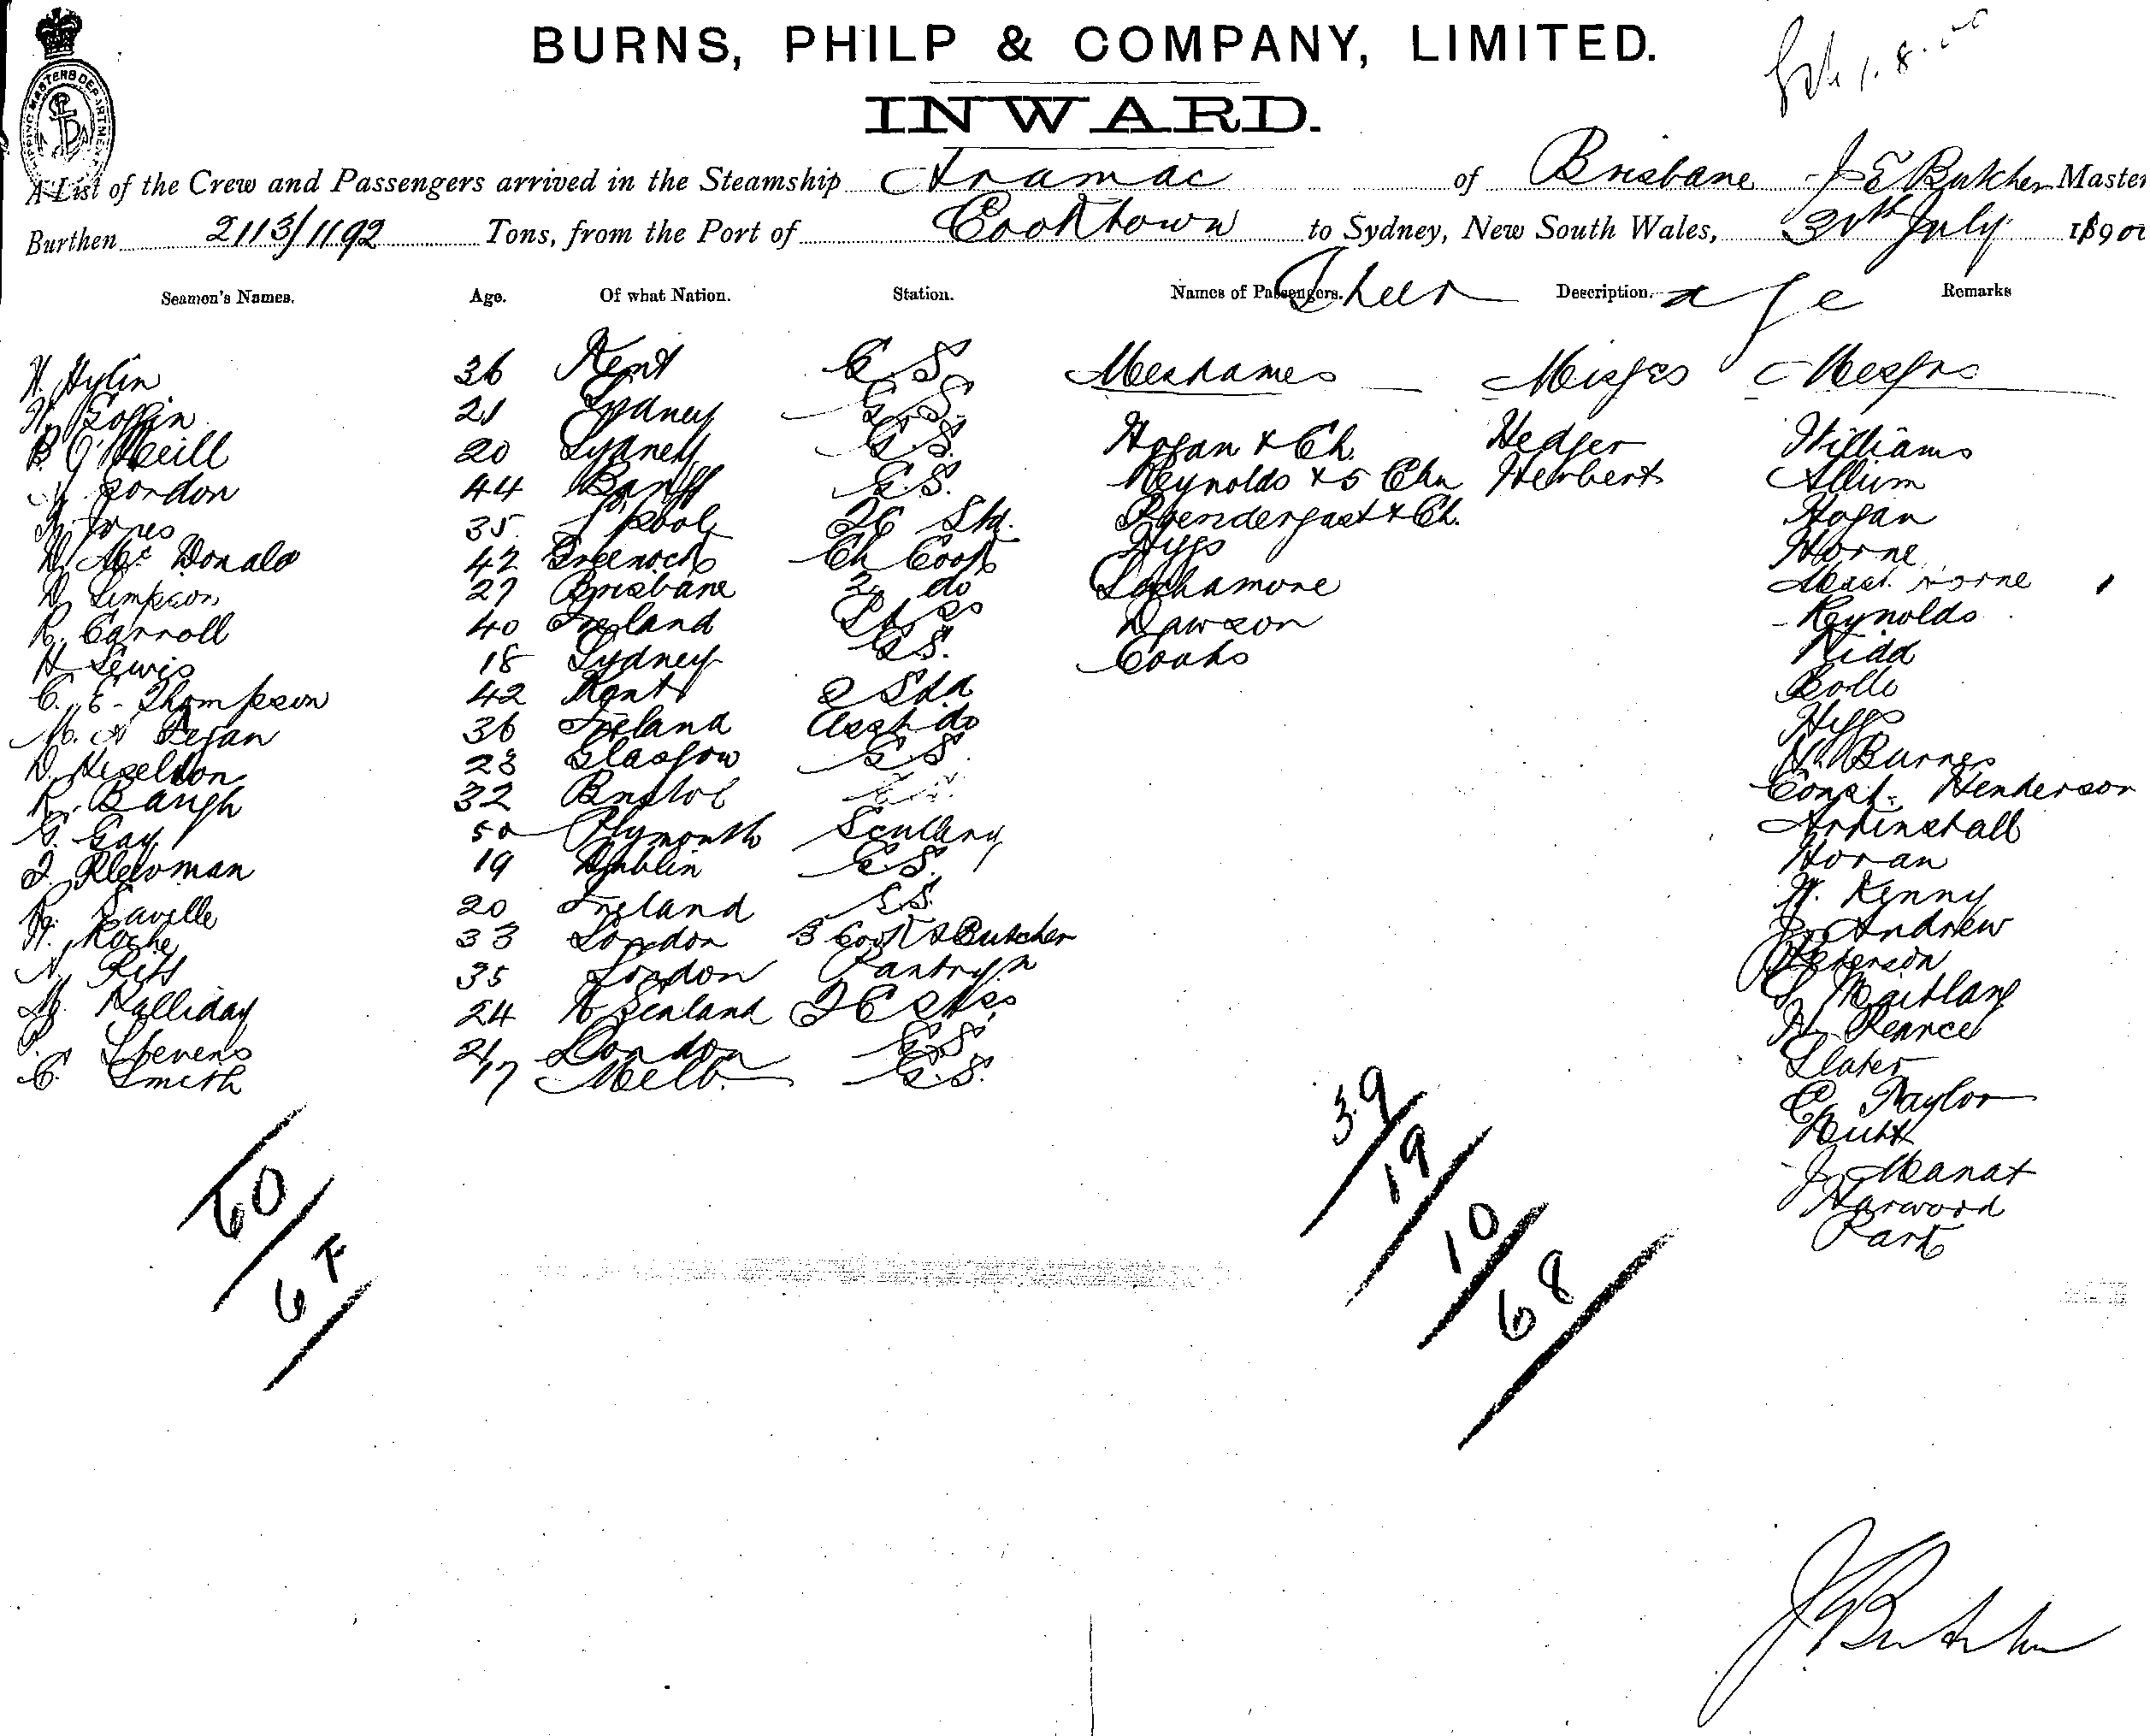 BURNS, PHILP & COMPANY, LIMITED.
INWARD.
SHIPPING MASTERS DEPARTMENT
A List of the Crew and Passengers arrived in the Steamship Aramac of Brisbane J E Butcher Master
Burthen 2113/1192 Tons, from the Port of Cooktown to Sydney, New South Wales, 30th July 1900
Seamen's Names. Age. Of what Nation. Station. Names of Passengers. Description. Remarks
Steerage
H. Hylin 36 Kent G S
H. Goffin 21 Sydney G.S.
B. O'Neill 20 Sydney G S.
Gordon 44 Banff G.S.
Jones 35 L'pool 2C Std.
McDonald 42 Greenock Ch Cook
Simpson 27 Brisbane 2 do
R. Carroll 40 Ireland
H Lewis 18 Sydney G.S.
C. E. Thompson 42 Kent S Std
M. A Degan 36 Ireland Asst do
D. Heseldon 28 Glasgow G S
R. Baugh 32 Bristol
G. Gay 50 Plymouth Scullery
J. Plewman 19 Dublin G.S.
Saville 20 Ireland G.S.
H. Roche 33 London 3 Cook & Butcher
A. Pitt 35 London Pantryn
Halliday 24 N Zealand 2C
Stevens 21 London G.S.
C. Smith 17 Melb. G.S.
60
67
Mesdames
Hogan & Ch.
Reynolds & 5 Chn
Prendergast & Ch.
Higgs
Lachamore
Dawson
Coats
Misses
Hedger
Herbert
Messrs
Williams
Allium
Hogan
Horne
Mast. Horne 1
Reynolds
Kidd
Rollo
Higgs
Burnes
Const. Henderson
Artinstall
Horan
W. Kenny
J. Andrew
Peterson
S. Maitland
H. Pearce
Slater
C. Taylor
Nutt
J. Manat
Harwood
Park
39
19
10
68
J E Butcher